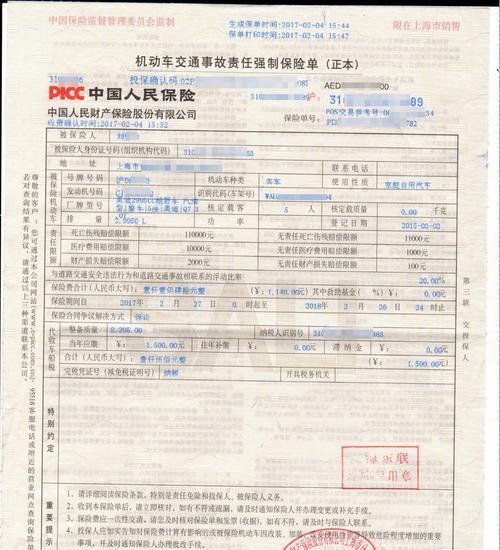 中国保险监督管理委员会监制
生成保单时间:2017-02-04 15:44
保单打印时间:2017-02-04 15:47
限在上海市销售
机动车交通事故责任强制保险单（正本）
投保确认码:02P
AED 00
PICC 中国人民保险
沪: 31 89
中国人民财产保险股份有限公司
POS交易参考号:
收费确认时间:2017-02-04 15:32
保险单号:
被保险人 刘
被保险人身份证号码(组织机构代码) 310 53
地址 上海市 联系电话
被保险机动车
号牌号码 沪D 机动车种类 客车 使用性质 家庭自用汽车
发动机号 识别代码(车架号) WAU
厂牌型号 核定载客 5 人 核定载质量 0.00 千克
排量 2.9950 L 功率 登记日期 2015-03-03
责任限额
死亡伤残赔偿限额 110000元 无责任死亡伤残赔偿限额 11000元
医疗费用赔偿限额 10000元 无责任医疗费用赔偿限额 1000元
财产损失赔偿限额 2000元 无责任财产损失赔偿限额 100元
与道路交通安全违法行为和道路交通事故相联系的浮动比率 20.00%
保险费合计(人民币大写): 壹仟壹佰肆拾元整 (￥: 1,140.00 元) 其中救助基金( %) ￥: 0.00 元
保险期间自 2017 年 2 月 27 日 0 时起至 2018 年 2 月 26 日 24 时止
保险合同争议解决方式 诉讼
代收车船税
整备质量 2,295.00 纳税人识别号 31 463
当年应缴 ￥: 1,500.00元 往年补缴 ￥: 0.00元 滞纳金 ￥: 0.00元
合计(人民币大写): 壹仟伍佰元整 (￥: 1,500.00元)
完税凭证号(减免税证明号) 纳税 开具税务机关
特别约定
重要提示
1、请详细阅读保险条款，特别是责任免除和投保人、被保险人义务。
2、收到本保险单后，请立即核对，如有不符或疏漏，请及时通知保险人并办理变更或补充手续。
3、保险费应一次性交清，请您及时核对保险单和发票(收据)，如有不符，请及时与保险人联系。
4、投保人应如实告知对保险费计算有影响的或被保险机动车因改装、加装、改变使用性质等导致危险程度增加的重要
事项，并及时通知保险人办理批改手续。
第三联 交投保人
尊敬的客户：您可通过本公司网站(www.e-picc.com.cn)、95518客服电话或附近的营业网点查询保单
若对查询结果有异议，请通过以上三种渠道联系本公司。